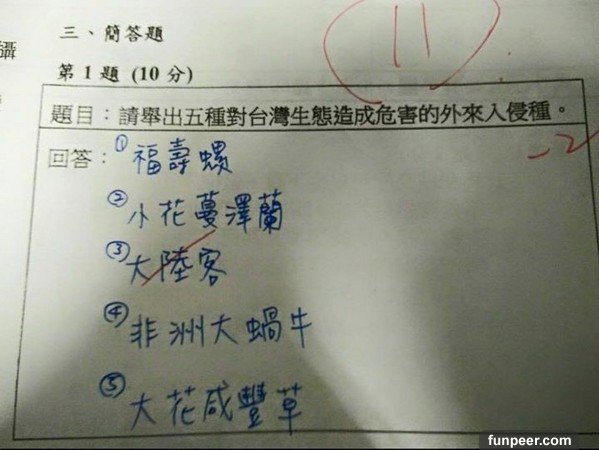 攝
11
三、簡答題
第 1 題 (10 分)
題目：請舉出五種對台灣生態造成危害的外來入侵種。
-2
回答：①福壽螺
②小花蔓澤蘭
③大陸客
④非洲大蝸牛
⑤大花咸豐草
funpeer.com